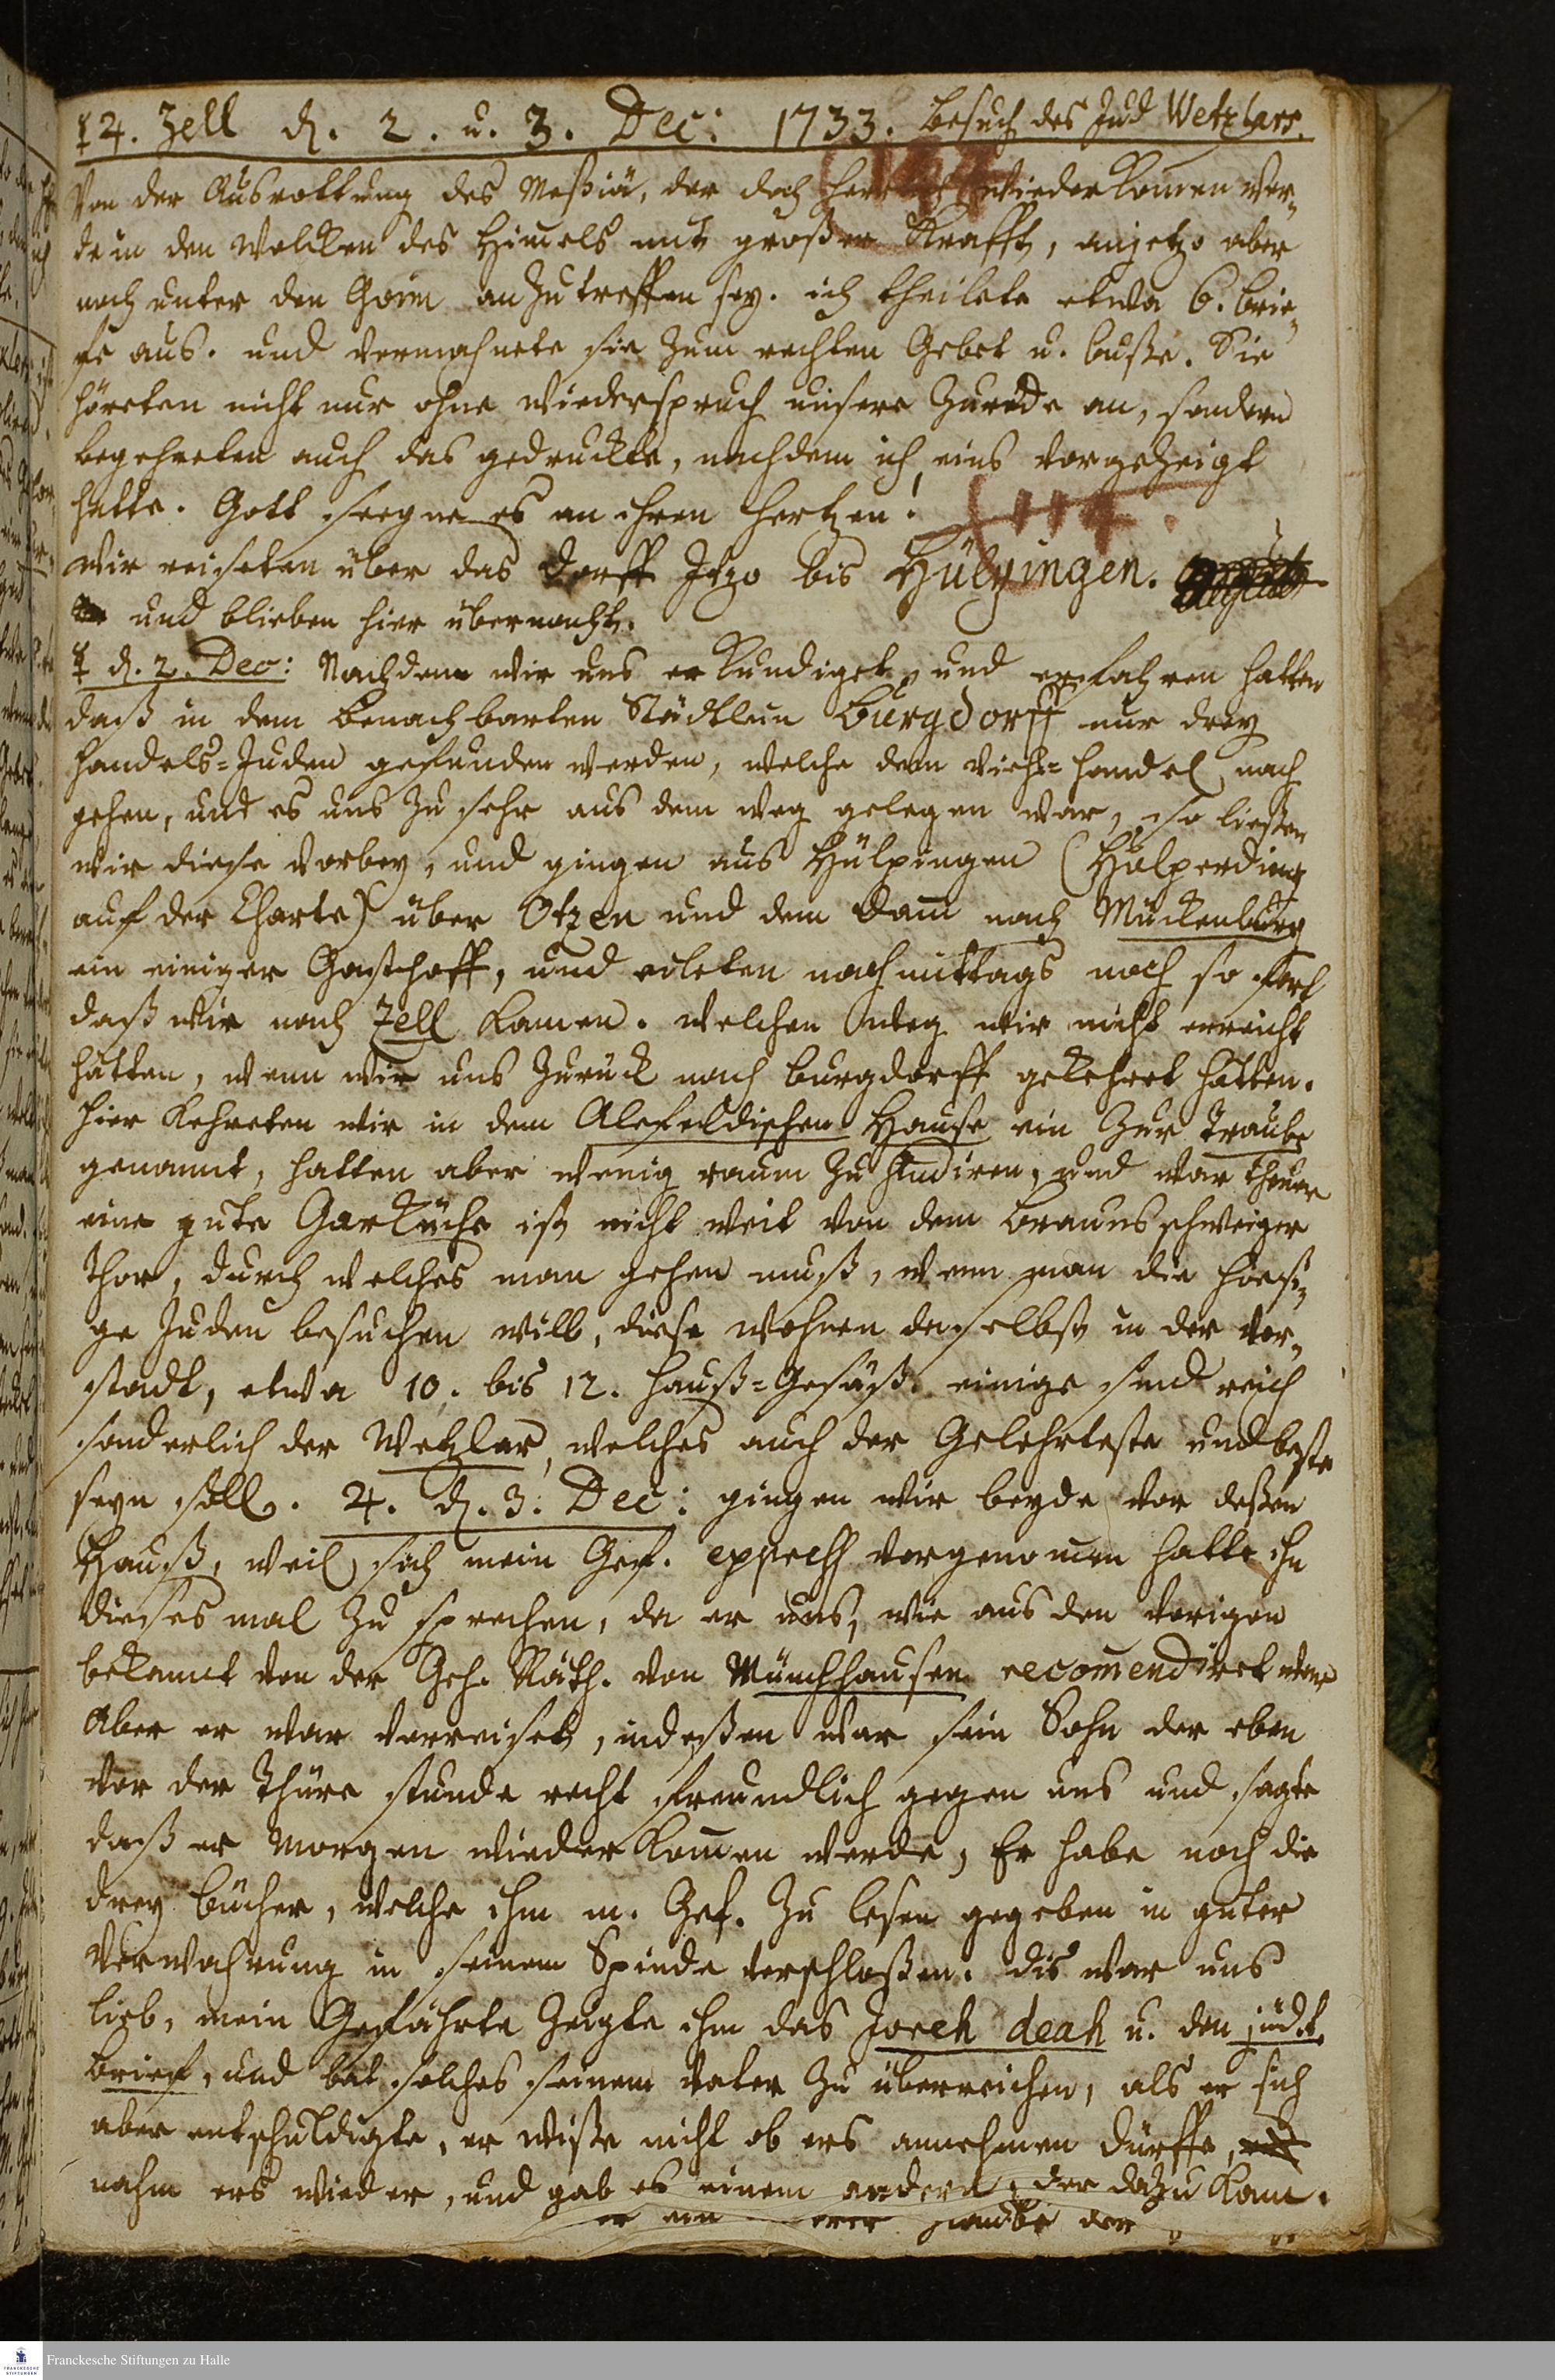 ☿ 4. Zell d. 2. u. 3. Dec: 1733. Besuch des Jud Wetzlars.
Von der Ausrottung des Meßiä, der doch wiederkomen wer-
de in den Wolcken des Himels mit großer Krafft, anjetzo aber
noch unter den Gojim anzutreffen sey. ich theilete etwa 6. brie-
fe aus. und vermahnete sie zum rechten Gebet u. buße. Sie
höreten nicht nur ohne wiederspruch unsere Zurede an, sondern
begehreten auch das gedruckte, nachdem ich eins vorgezeigt
hatte. Gott seegne es an ihren hertzen! 114.
Wir reiseten über das Dorff Itzo bis Hülpingen.
und blieben hier übernacht.
☿ d. 2. Dec: Nachdem wir uns erkundiget, und erfahren hatten
daß in dem benachbarten Städtlein Burgdorff nur drey
handels-Juden gefunden werden, welche dem Viehe-handel nach
gehen, und es uns zu sehr aus dem weg gelegen war, so ließen
wir diese vorbey, und gingen aus Hülpingen (Hülperding
auf der Charte) über Otzen und dem Dam nach Mückenburg
ein einiger Gasthoff, und eileten nachmittags noch so fort
daß wir nach Zell kamen. welchen weg wir nicht erreicht
hätten, wenn wir uns zurück nach Burgdorff gekehret hätten.
hier kehreten wir in dem Alefeldischen Hause ein zur Traube
genannt, hatten aber wenig raum zu studiren, und war theuer
eine gute Garküche ist nicht weit von dem Braunschweiger
Thor, durch welches man gehen muß, wenn man die hiesi-
ge Juden besuchen will, diese wohnen daselbst in der Vor-
stadt, etwa 10. bis 12. Hauß-Gesäß. einige sind reich
sonderlich der Wetzlar, welches auch der Gelehrteste und beste
seyn soll. 4. d. 3. Dec: gingen wir beyde vor deßen
Hauß, weil sich mein Gef. expreß vorgenomen hatte ihn
dieses mal zu sprechen, da er uns, wie aus den vorigen
bekannt von der Geh. Räth. von Münchhausen recomendiret war
Aber er war verreiset, indeßen war sein Sohn der eben
vor der Thüre stunde recht freundlich gegen uns und sagte
daß er Morgen wieder komen werde, Er habe noch die
drey bücher, welche ihm m. Gef. zu lesen gegeben in guter
Verwahrung in seinem Spinde verschloßen. dis war uns
lieb, mein Gefährte zeigte ihm das Joreh deah u. den jüd.t.
brief, und bat solches seinem Vater zu überreichen, als er sich
aber entschuldigte, er wiße nicht ob ers annehmen dürffe,
nahm ers wieder, und gab es einem andern, der dazu kam.
Franckesche Stiftungen zu Halle